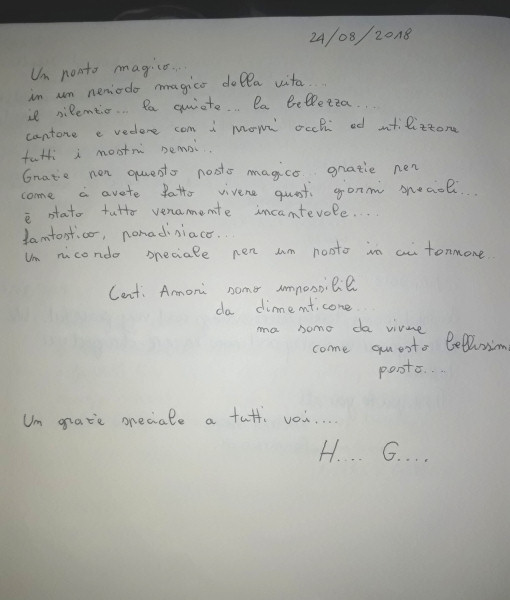 24/08/2018
Un posto magico...
in un periodo magico della vita...
il silenzio... la quiete... la bellezza...
captare e vedere con i propri occhi ed utilizzare
tutti i nostri sensi...
Grazie per questo posto magico... grazie per
come ci avete fatto vivere questi giorni speciali...
è stato tutto veramente incantevole....
fantastico, paradisiaco...
Un ricordo speciale per un posto in cui tornare...
Certi Amori sono impossibili
da dimenticare...
ma sono da vivere
come questo bellissim
posto...
Un grazie speciale a tutti voi....
H.... G....